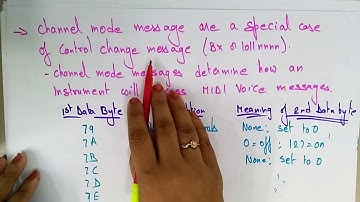 → Channel mode message are a special case
of control change message (Bx or 1011nnnn).
- Channel mode messages determine how an
Instrument will MIDI Voice messages.
1st Data Byte Meaning of 2nd data Byte
79 None; set to 0
7A 0=off ; 127=on
7B None; set to 0
7C "
7D "
7E